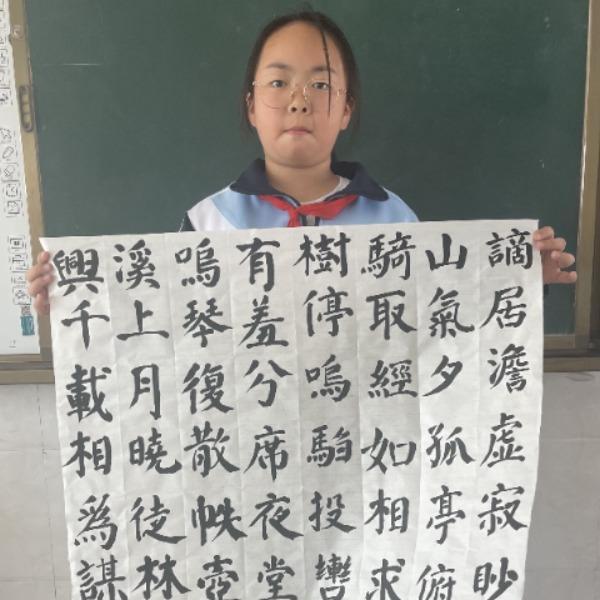 謫居澹虚寂眇
山氣夕孤亭俯
騎取經如相求
樹停嗚騶投轡
有羞分席夜堂
嗚琴復散帙壺
溪上月曉徒林
興千載相爲謀